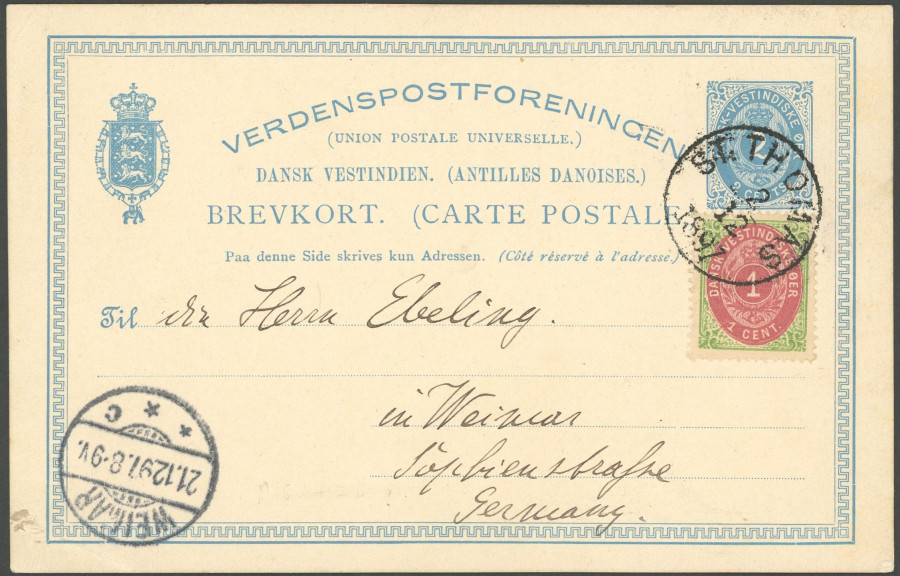 VERDENSPOSTFORENINGEN
(UNION POSTALE UNIVERSELLE.)
DANSK VESTINDIEN. (ANTILLES DANOISES.)
BREVKORT. (CARTE POSTALE
Paa denne Side skrives kun Adressen. (Côté réservé à l'adresse.)
2
CENTS
ST. THOMAS
1897
DANSK-VESTINDISKE ØER
1
1 CENT.
Til den Herrn Ebeling.
in Weimar
Sophienstraße
Germany.
C
21.12.97.8-9V.
WEIMAR